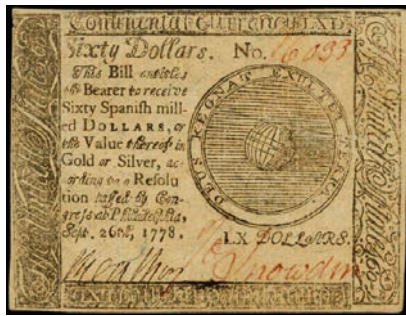 Continental Currency LXD.
Sixty Dollars. No. 16033
This Bill entitles
the Bearer to receive
Sixty Spanish mill-
ed DOLLARS, or
the Value thereof in
Gold or Silver, ac-
cording to a Resolu
tion passed by Con-
gress at Philadelphia,
Sept. 26th, 1778.
DEUS REGNAT EXULTET TERRA.
LX DOLLARS.
Snowden
The United States